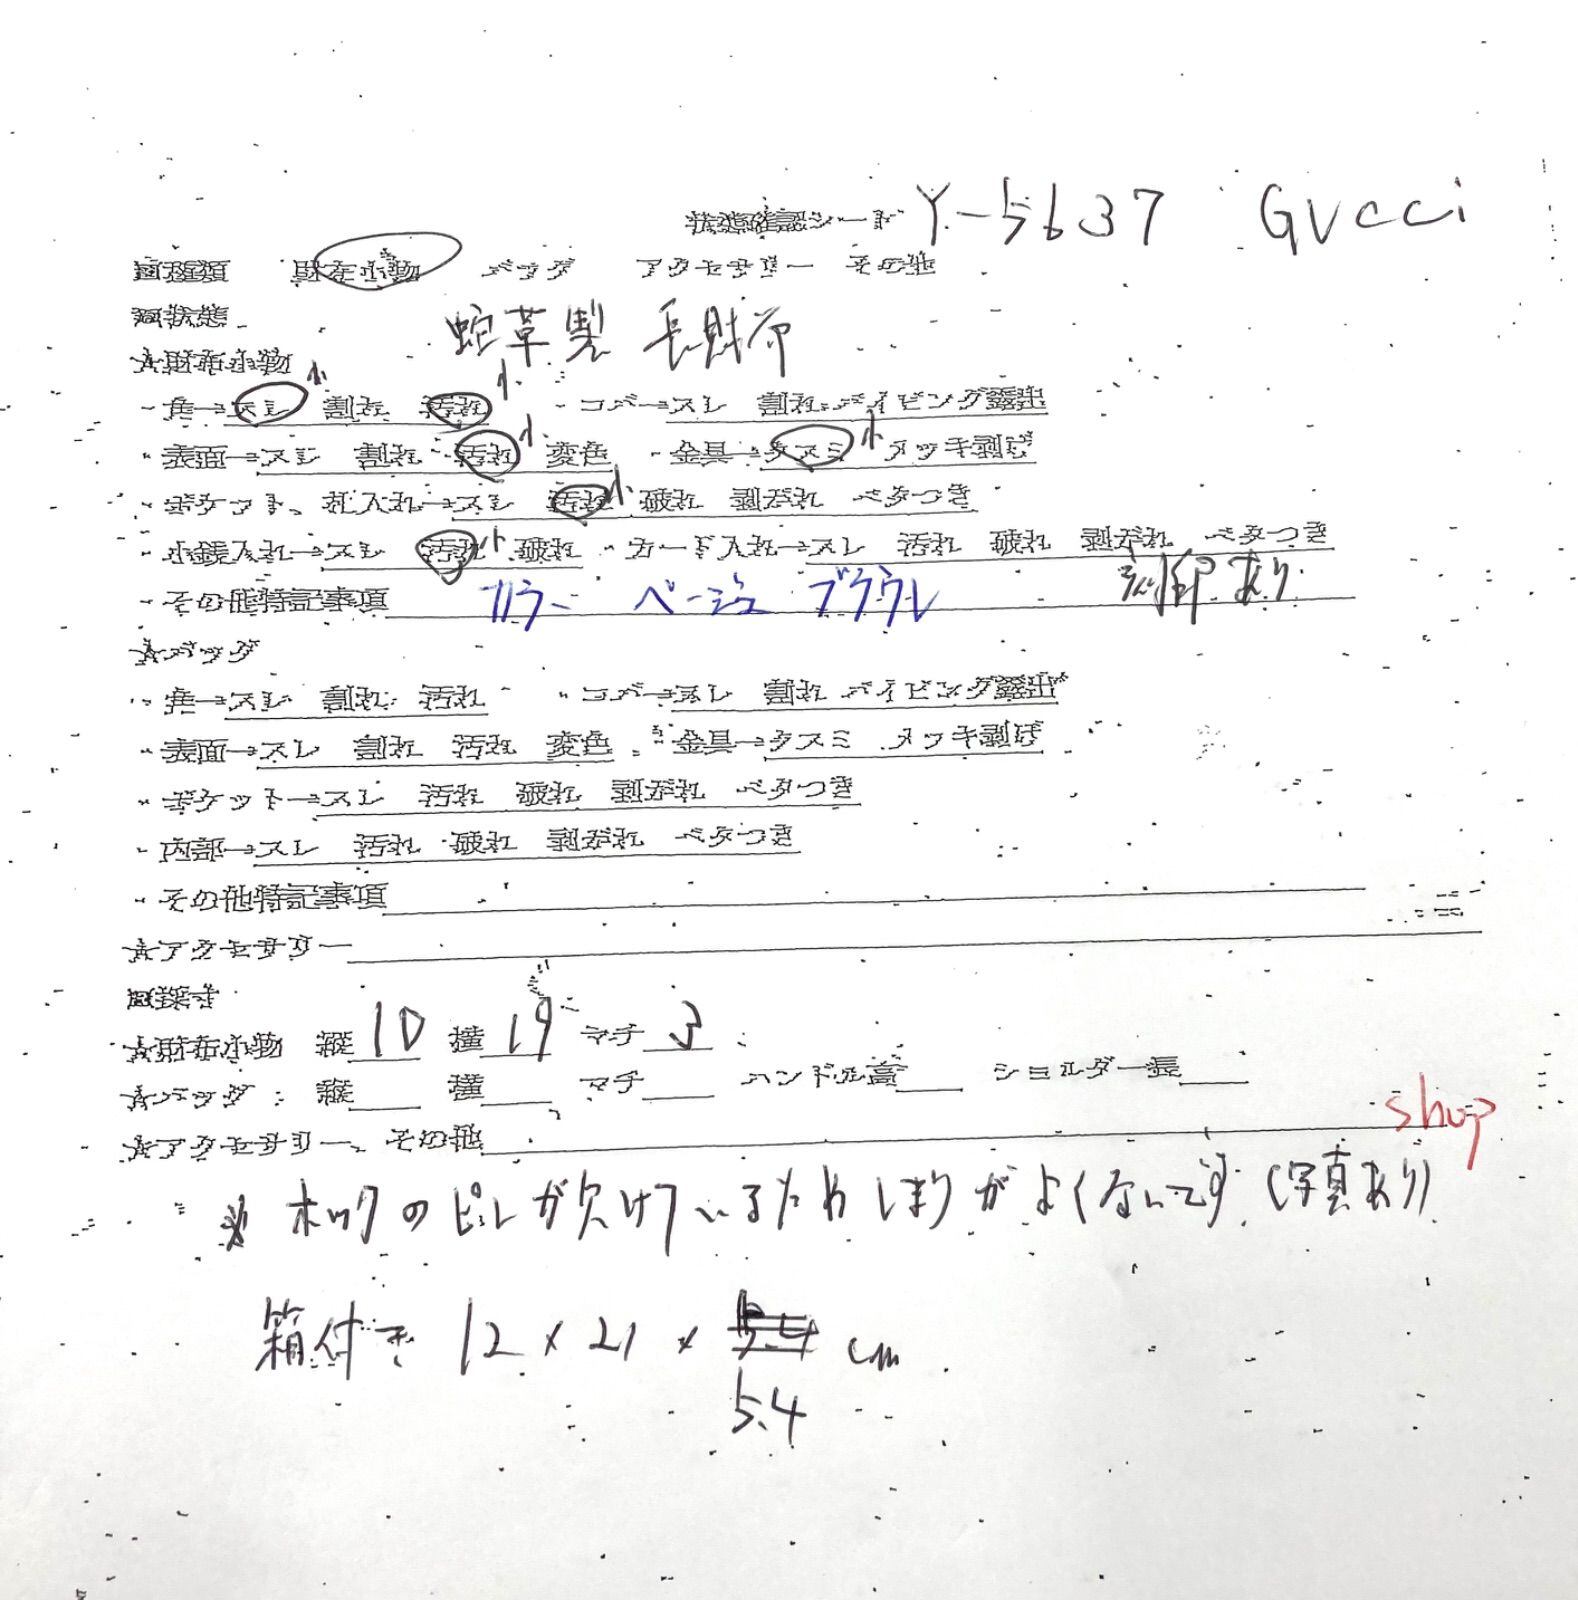 状態確認シート Y-5637 Gucci
■種類 財布小物 バッグ アクセサリー その他
■状態
蛇革製 長財布
★財布小物
・角→スレ 小 割れ 汚れ 小 ・コバ→スレ 割れ パイピング露出
・表面→スレ 割れ 汚れ 小 変色 ・金具→クスミ 小 メッキ剥げ
・ポケット、札入れ→スレ 汚れ 小 破れ 剥がれ ベタつき
・小銭入れ→スレ 汚れ 小 破れ ・カード入れ→スレ 汚れ 破れ 剥がれ ベタつき
・その他特記事項 カラー ベージュ ブラウン 刻印あり
★バッグ
・角→スレ 割れ 汚れ ・コバ→スレ 割れ パイピング露出
・表面→スレ 割れ 汚れ 変色 ・金具→クスミ メッキ剥げ
・ポケット→スレ 汚れ 破れ 剥がれ ベタつき
・内部→スレ 汚れ 破れ 剥がれ ベタつき
・その他特記事項
★アクセサリー
■採寸
★財布小物 縦 10 横 19 マチ 3
★バッグ：縦 横 マチ ハンドル高 ショルダー長
★アクセサリー、その他
shop
※ ホックのピンが欠けているため しまりがよくないです (写真あり)
箱付き 12 × 21 × cm
5.4